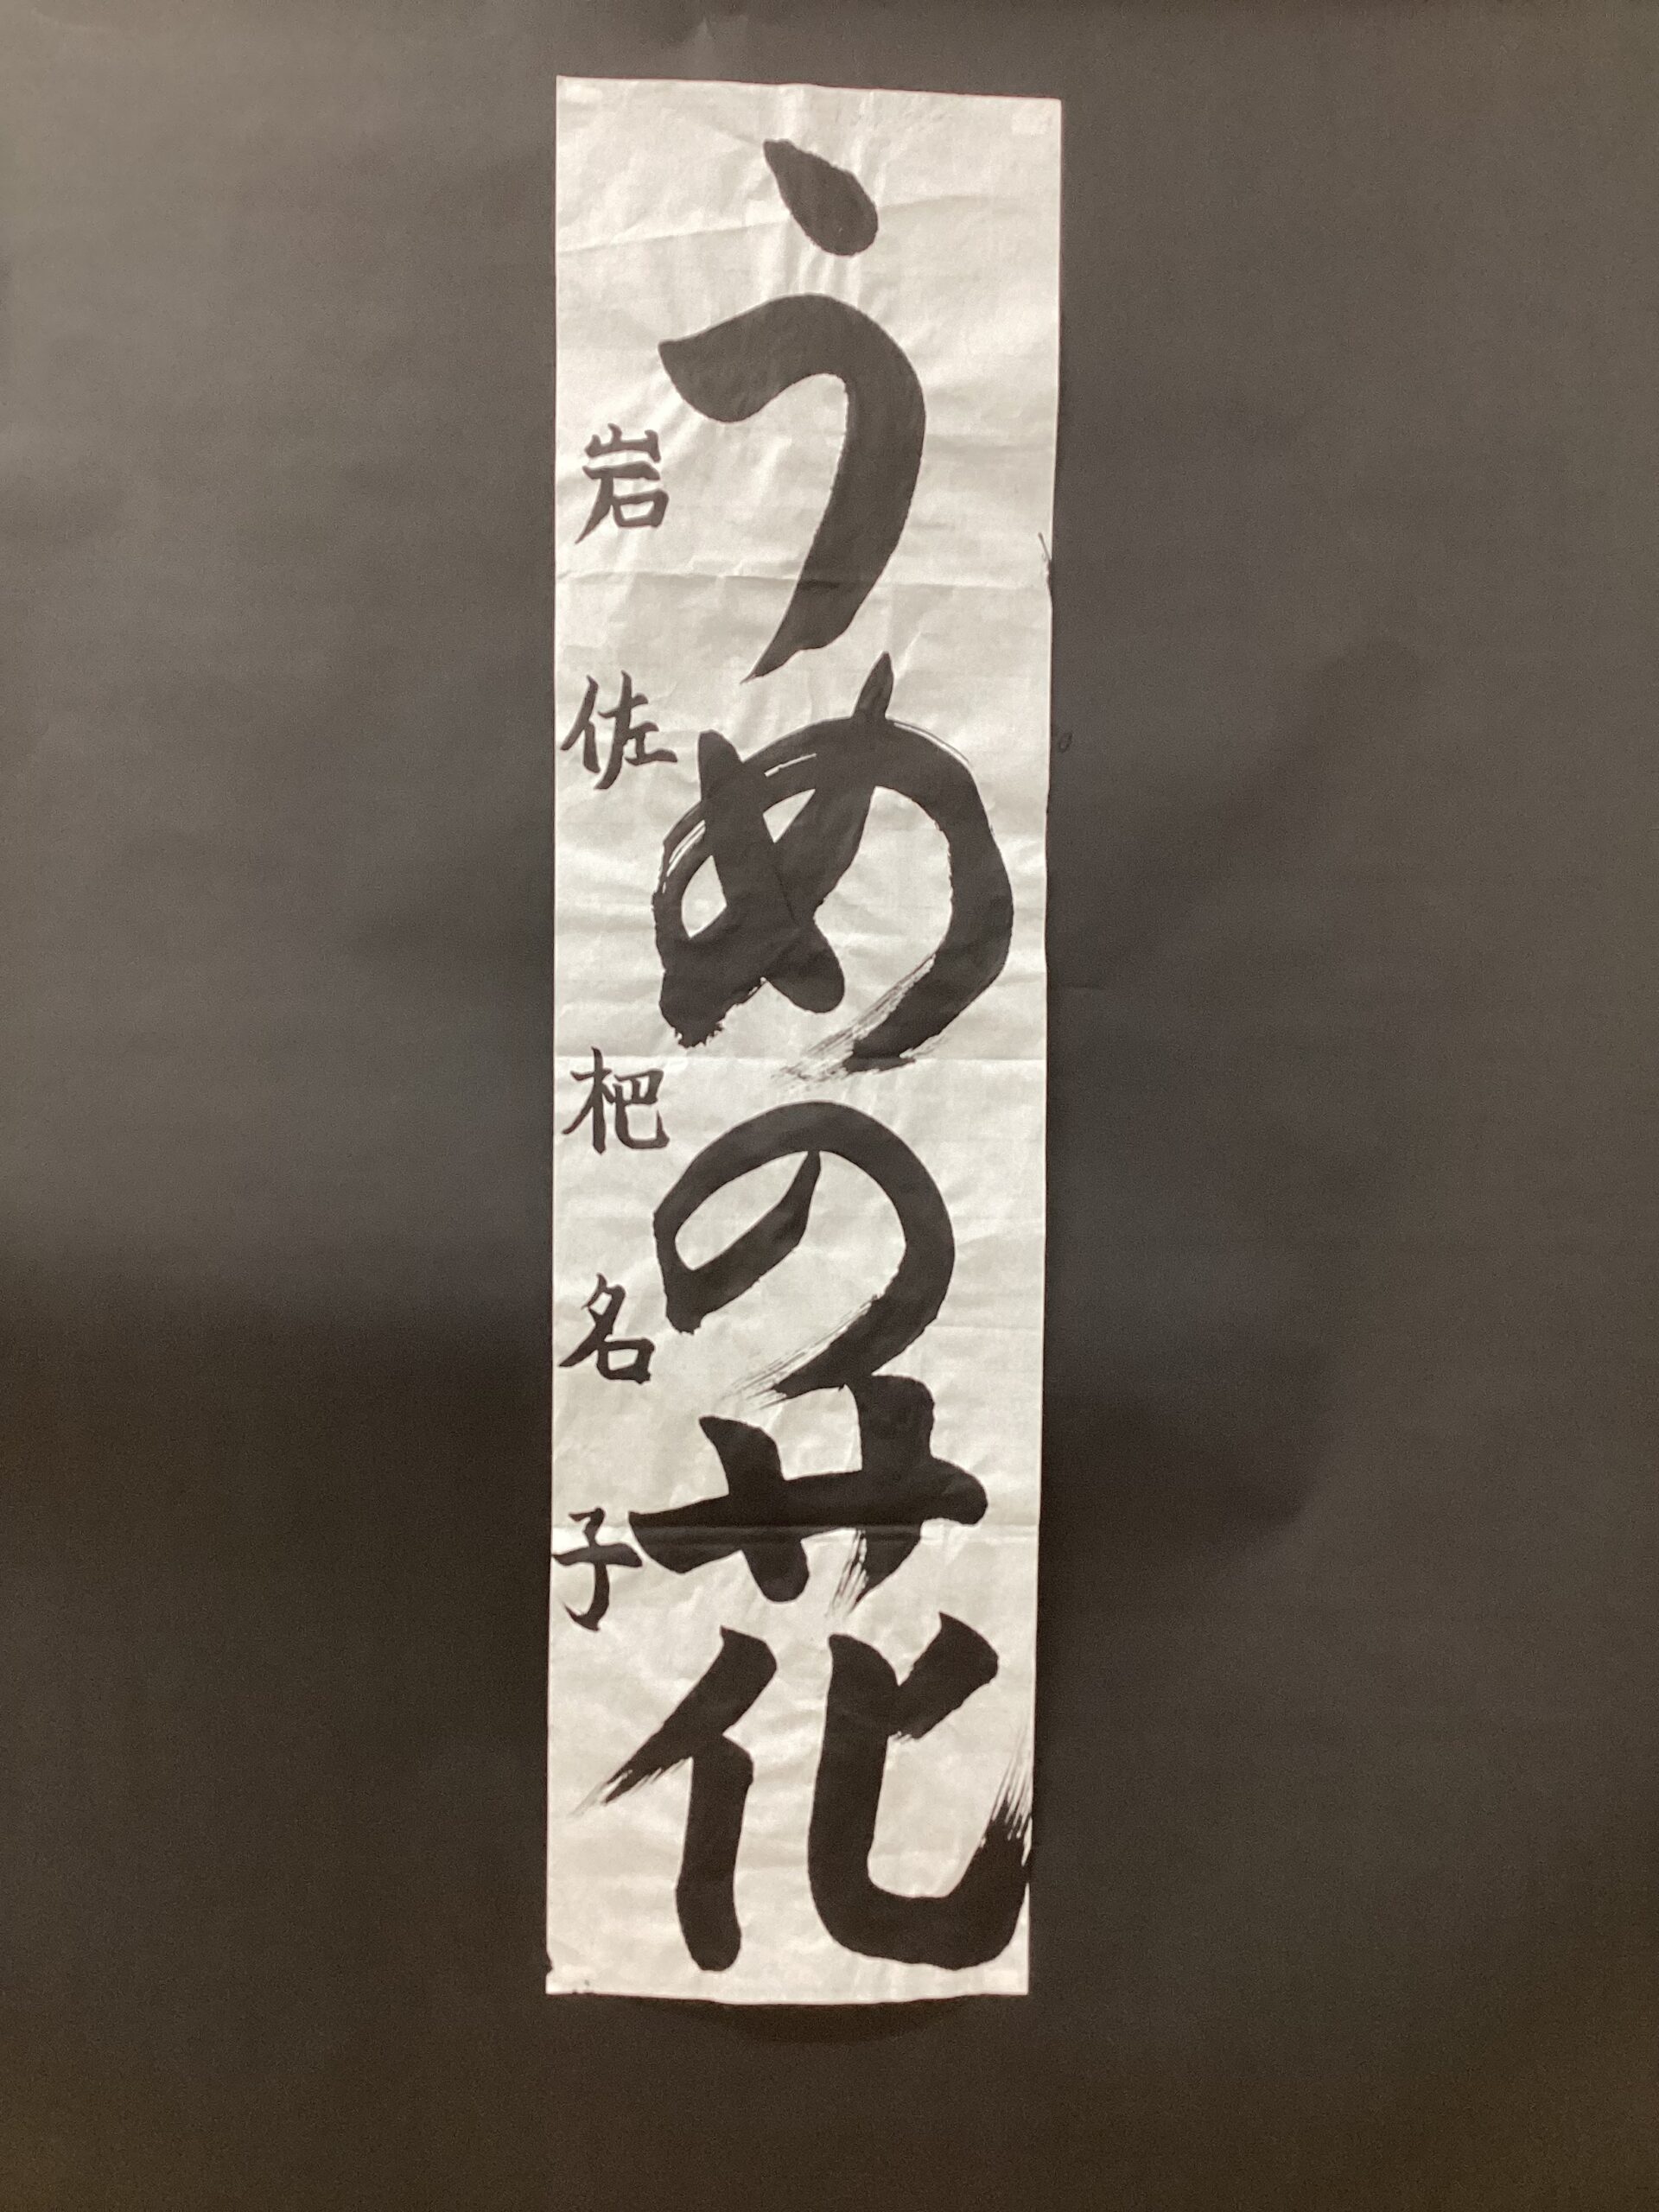 うめの花
岩佐杷名子